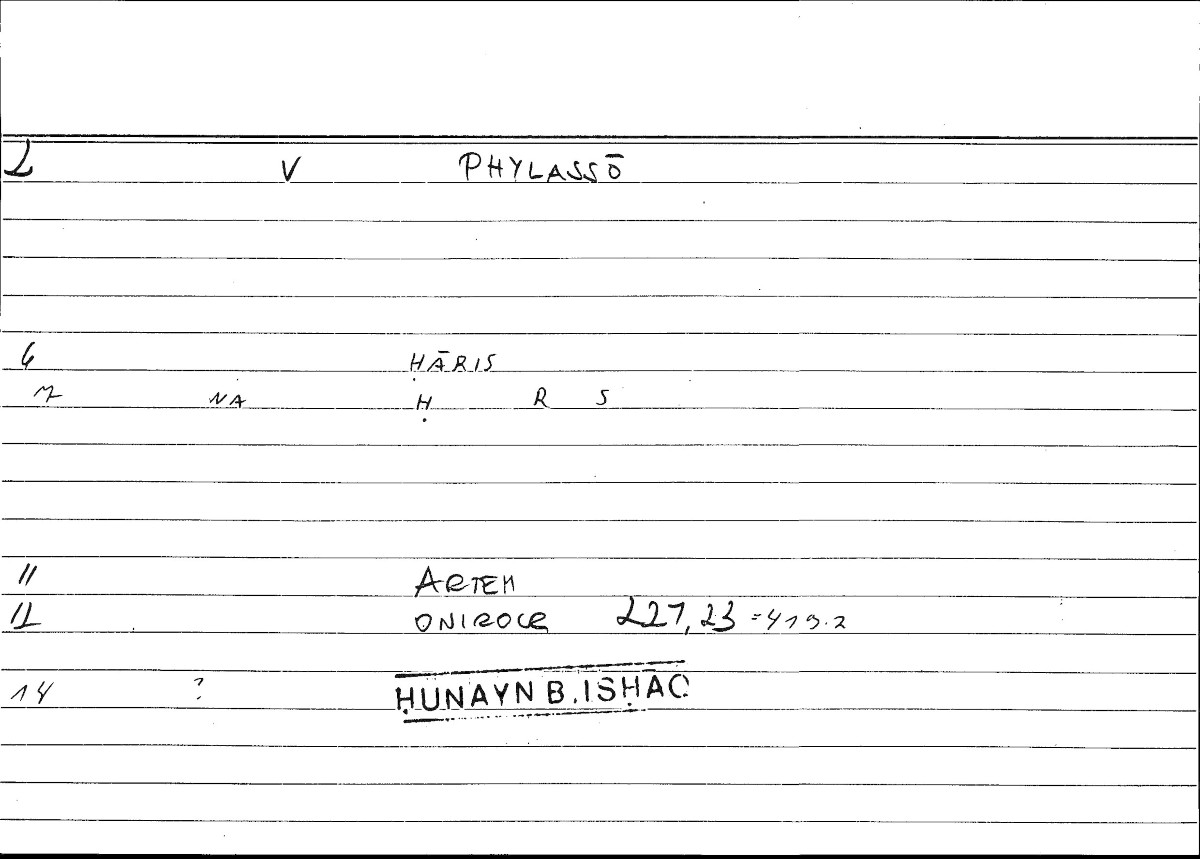 2 V PHYLASSŌ
6 ḤĀRIS
7 NA Ḥ R S
11 ARTEM
12 ONIROCR 227,23 =419.2
14 ? ḤUNAYN B. ISḤAQ